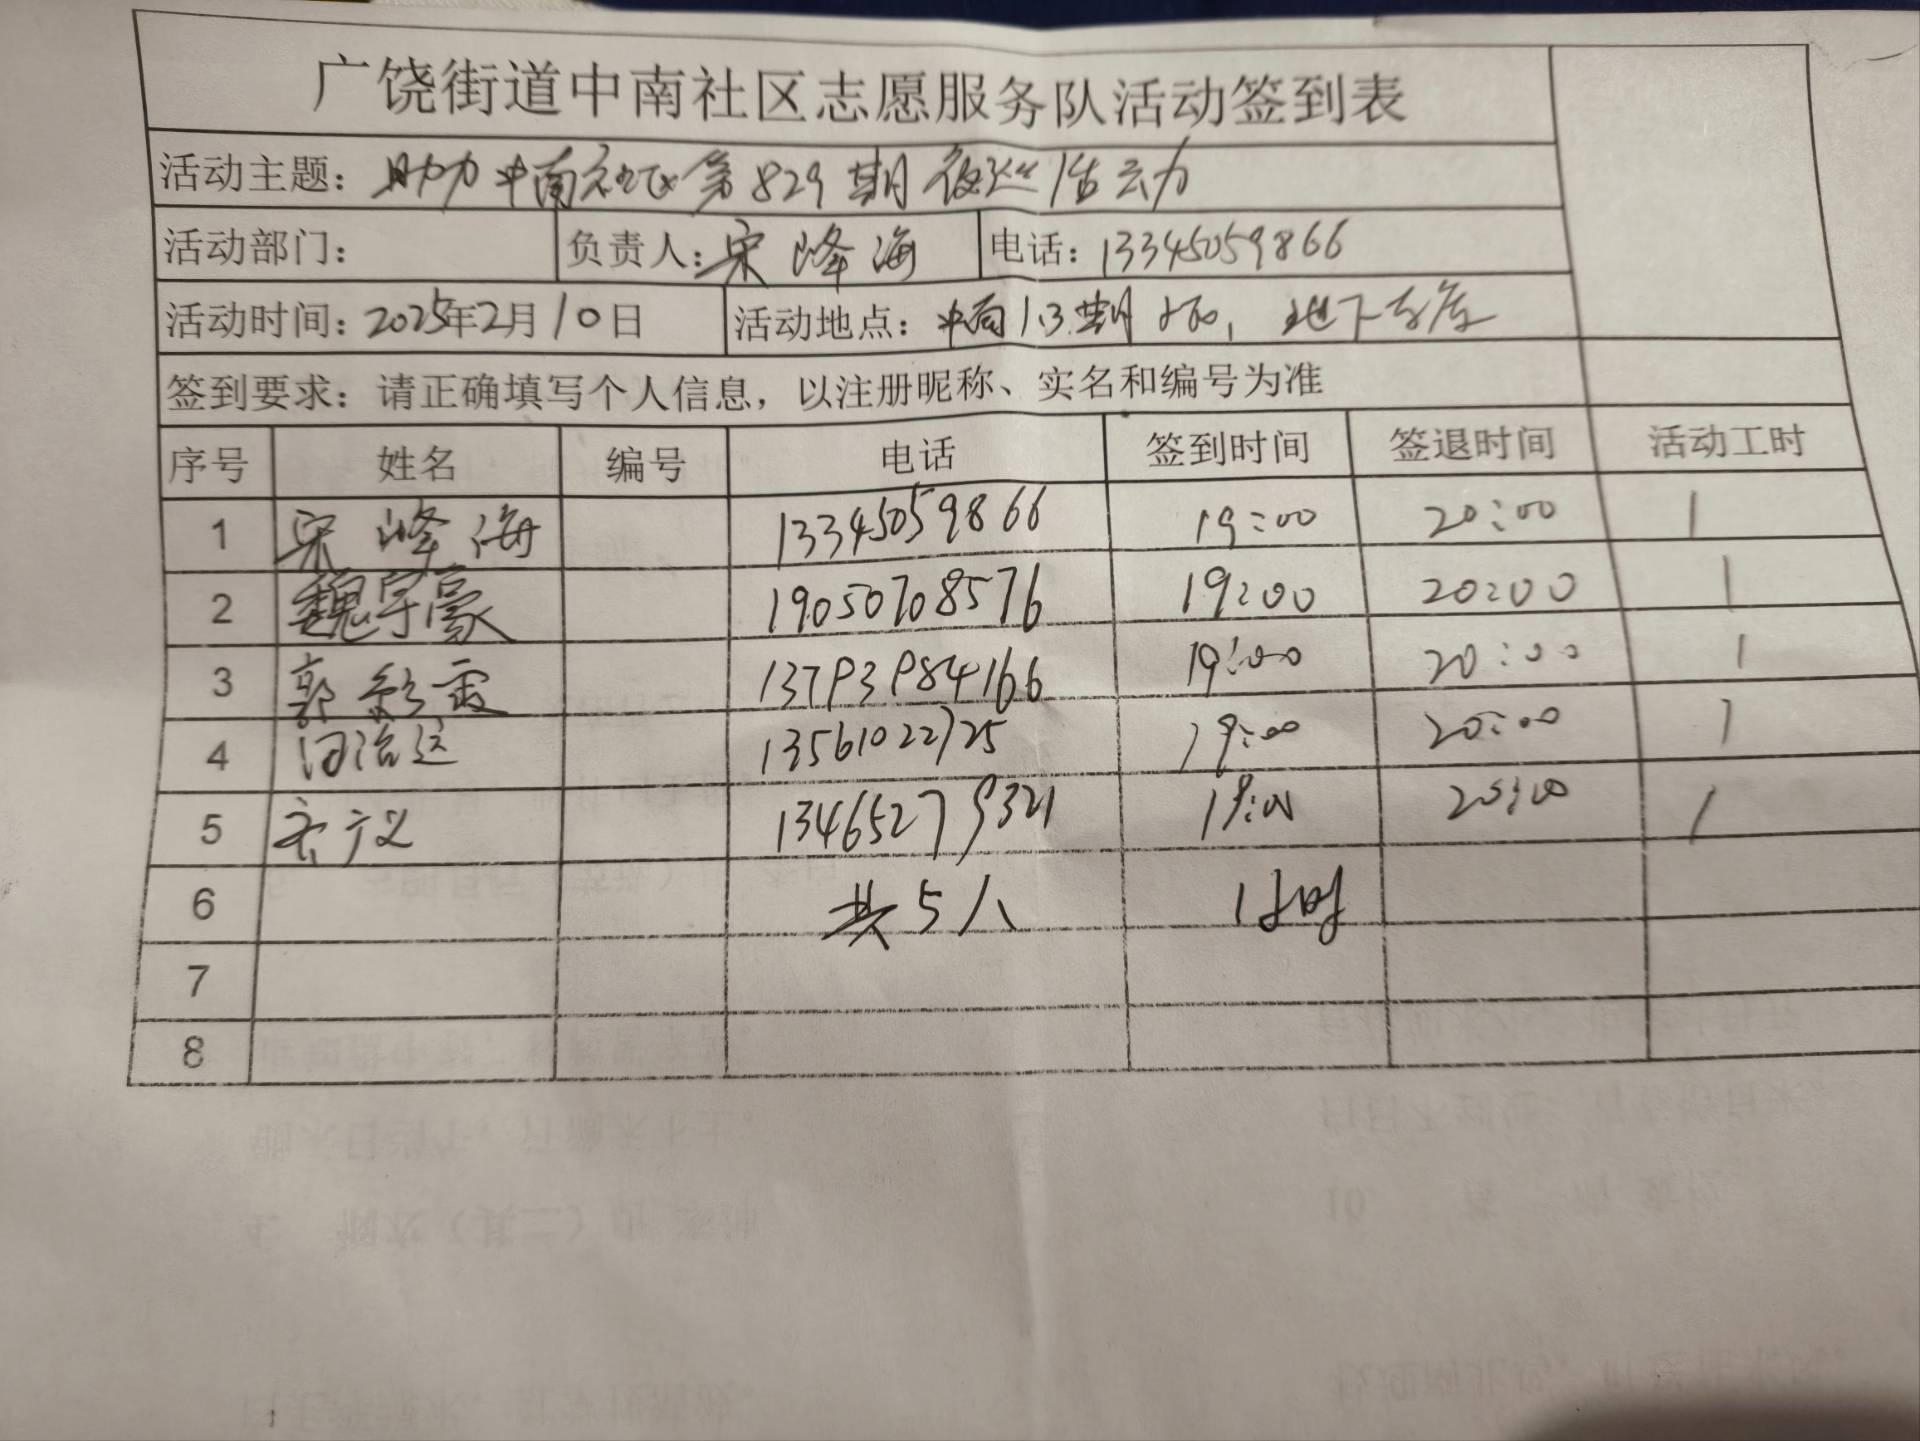 广饶街道中南社区志愿服务队活动签到表
活动主题：助力中南社区第829期夜巡活动
活动部门： 负责人：宋峰海 电话：13345059866
活动时间：2025年2月10日 活动地点：中南1.3期 地下车库
签到要求：请正确填写个人信息，以注册昵称、实名和编号为准
序号 姓名 编号 电话 签到时间 签退时间 活动工时
1 宋峰海 13345059866 19:00 20:00 1
2 魏宇豪 19050708576 19:00 20:00 1
3 郭彩霞 13793984166 19:00 20:00 1
4 13561022725 19:00 20:00 1
5 13465279321 19:00 20:00 1
6 共5人 1小时
7
8